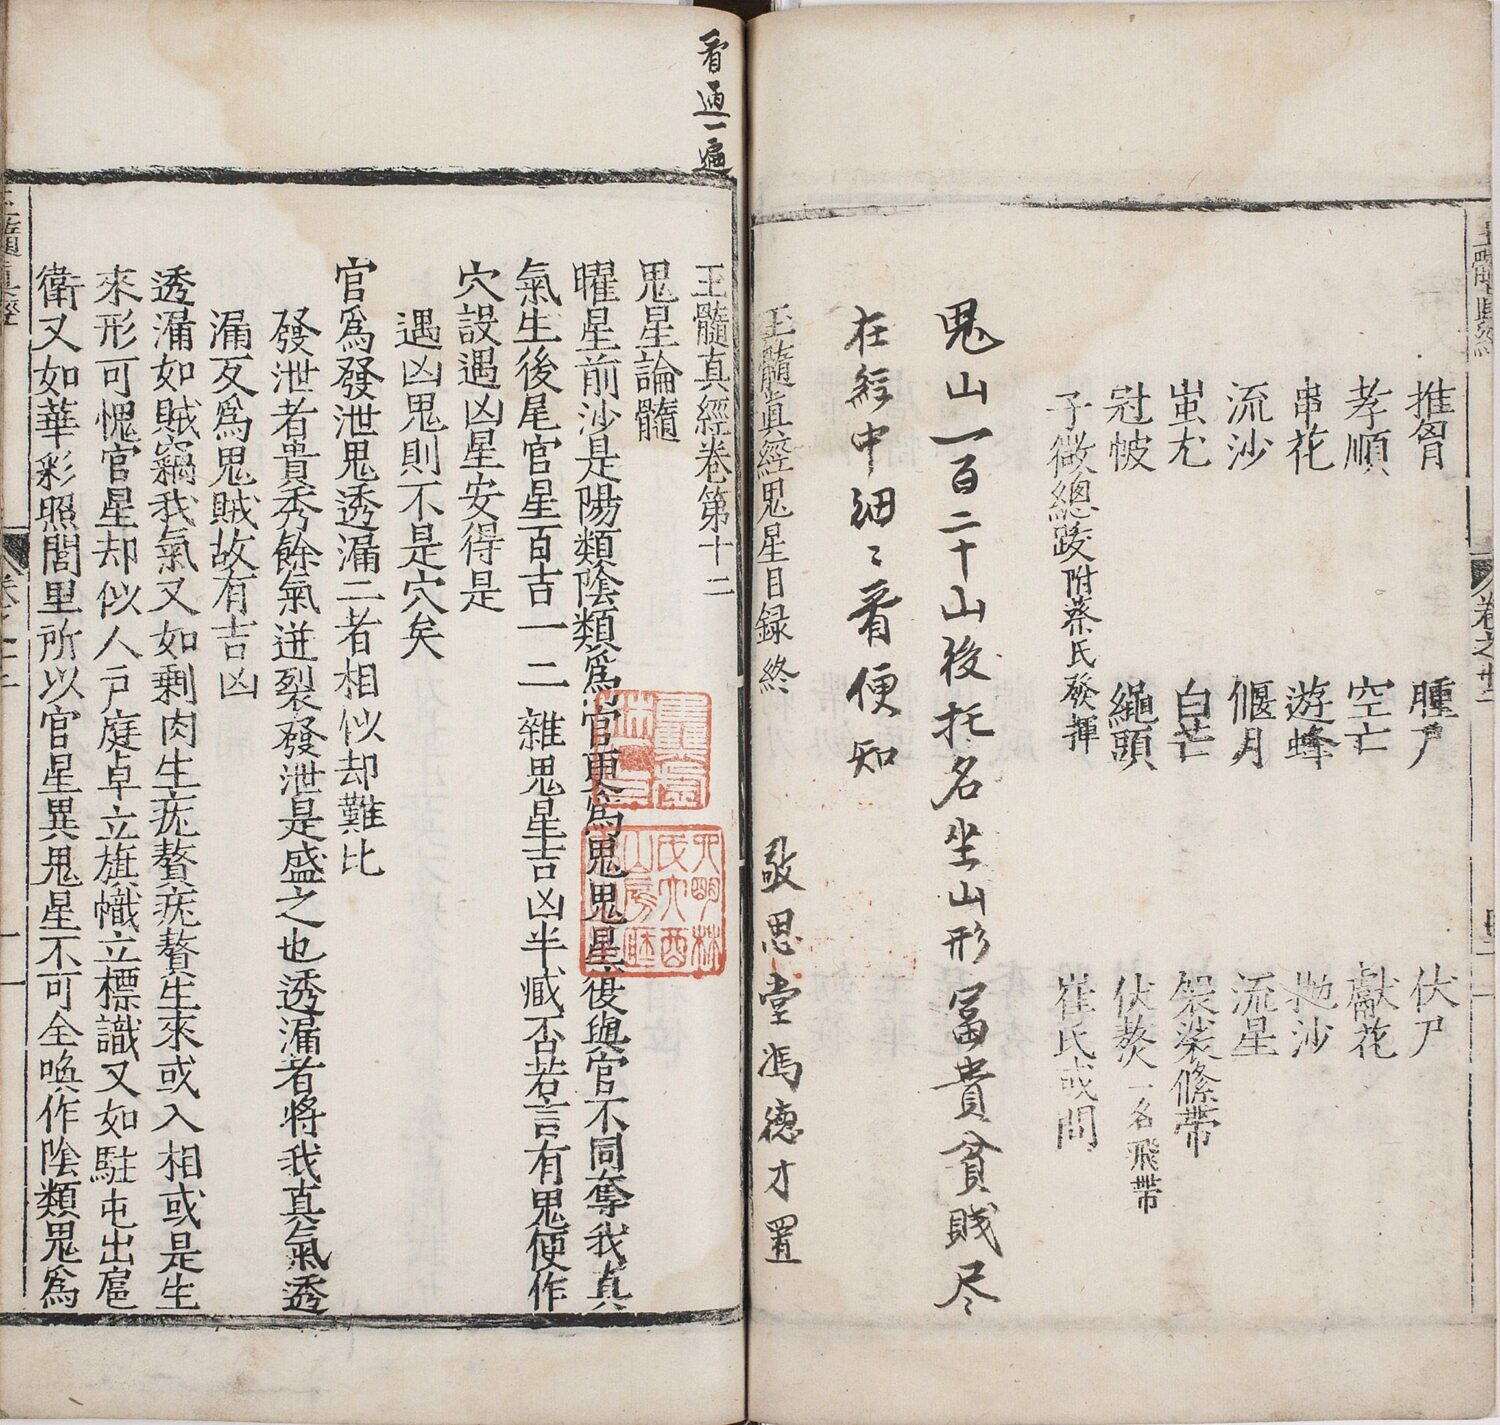 推胷 腫尸 伏尸
孝順 空亡 獻花
串花 遊蜂 抛沙
流沙 偃月 流星
蚩尤 白芒 袈裟絛帶
冠帔 繩頭 伏獘一名飛帶
子微總跋附蔡氏發揮 崔氏或問
鬼山一百二十山後托名坐山形富貴貧賤尽
在經中細〻看便知
玉髓眞經鬼星目録終
敬思堂馮德才置
看過一遍
玉髓真經卷第十二
鬼星論髓
曜星前沙是陽類陰類爲官更爲鬼鬼星後與官不同奪我真
氣生後尾官星百吉一二雜鬼星吉凶半臧否若言有鬼便作
穴設遇凶星安得是
遇凶鬼則不是穴矣
官爲發泄鬼透漏二者相似却難比
發泄者貴秀餘氣迸裂發泄是盛之也透漏者將我真氣透
漏反爲鬼賊故有吉凶
透漏如賊竊我氣又如剩肉生疣贅疣贅生來或入相或是生
來形可愧官星却似人戸庭卓立旌幟立標識又如駐屯出扈
衛又如華彩照閭里所以官星異鬼星不可全喚作陰類鬼爲